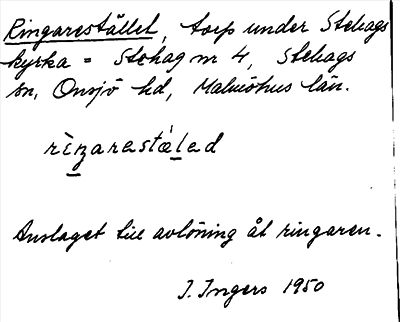 Ringarestället, torp under Stehags
kyrka = Stehag nr 4, Stehags
sn, Onsjö hd, Malmöhus län.
rìŋarestæ̀led
Anslaget till avlöning åt ringaren.
I. Ingers 1950